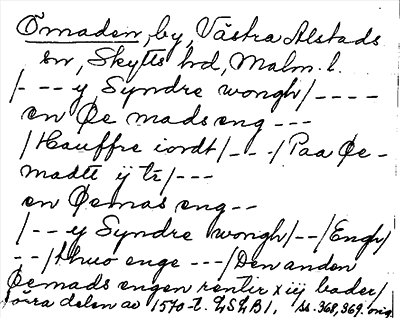 Ömaden, by, Västra Alstads
sn, Skytts hd, Malm. l.
/- - - y Syndre wongh/ - - - -
en Øe mads eng - - -
/Hauffre iordt/ - - -/ Paa Øe-
madtt ij tr/ - - -
en Øemas eng - -
/- - - y Syndre wongh/ - -/ Engh/
- -/ thuo enge - - -/ Den anden
Øemads engen rentir x iij bader/
södra delen av 1570-t. LSLB1, ss. 368, 369. orig